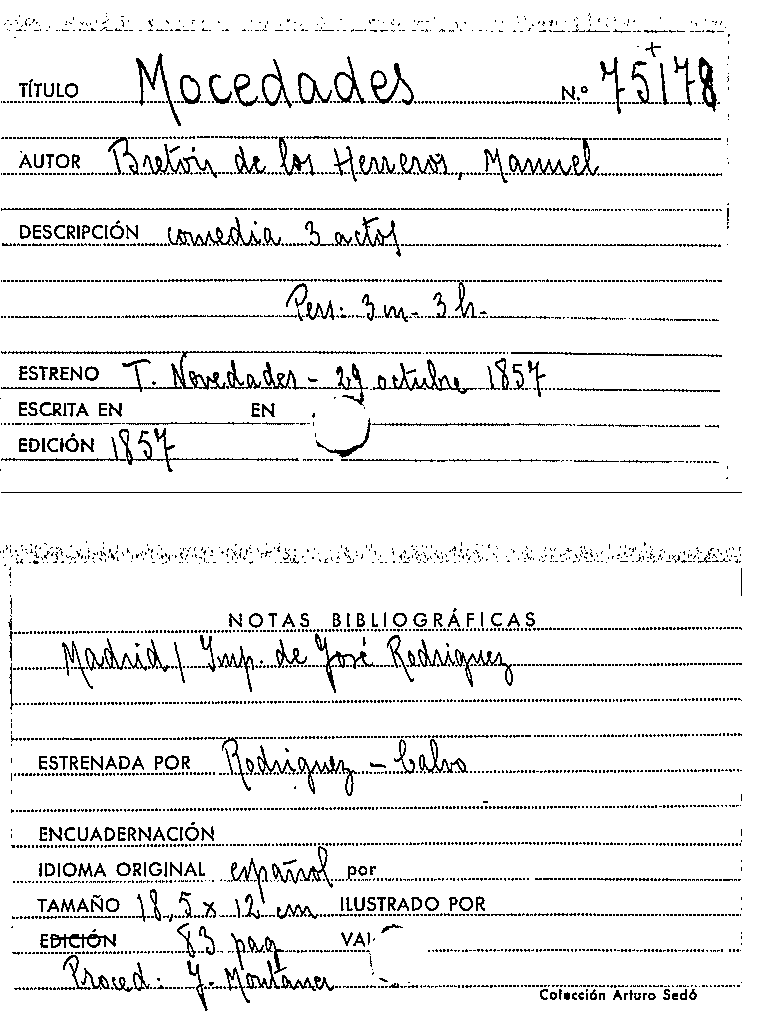 TÍTULO Mocedades N.º 75178
AUTOR Bretón de los Herreros, Manuel
DESCRIPCIÓN comedia 3 actos
Pers: 3 m- 3 h-
ESTRENO T. Novedades - 29 octubre 1857
ESCRITA EN EN
EDICIÓN 1857
NOTAS BIBLIOGRÁFICAS
Madrid / Imp. de José Rodriguez
ESTRENADA POR Rodriguez - Calvo
ENCUADERNACIÓN
IDIOMA ORIGINAL español por
TAMAÑO 18,5 x 12 cm ILUSTRADO POR
EDICIÓN 83 pag
Proced: J. Montaner
Colección Arturo Sedó